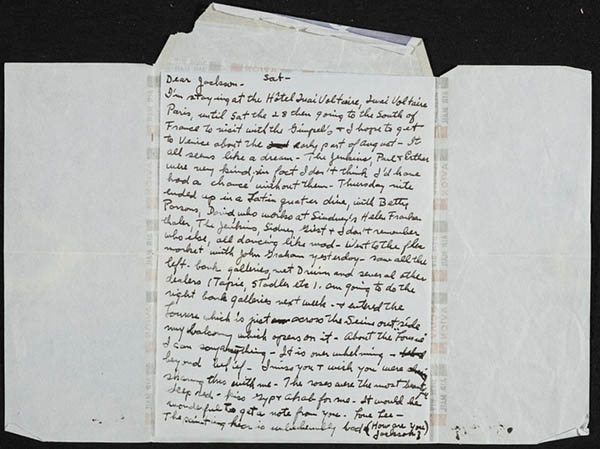 Sat-
Dear Jackson -
I'm staying at the Hôtel Quai Voltaire, Quai Voltaire
Paris, until Sat the 28 then going to the South of
France to visit with the Gimpel's & I hope to get
to Venice about the early part of August - It
all seems like a dream - The Jenkins, Paul & Esther
were very kind, in fact I don't think I'd have
had a chance without them - Thursday nite
ended up in a Latin quarter dive, with Betty
Parsons, David who works at Sindney's, Helen Franken
thaler, The Jenkins, Sidney Giest & I don't remember
who else, all dancing like mad - Went to the flea
market with John Graham yesterday - saw all the
left-bank galleries, met Druin and several other
dealers (Tapie, Stadler etc). am going to do the
right bank galleries next week - & entered the
Louvre which is just across the Seine outside
my balcony which opens on it - About the "Louvre"
I can say anything - It is over whelming -
beyond belief - I miss you & wish you were
sharing this with me - The roses were the most
deep red - Kiss Gyp & Ahab for me - It would be
wonderful to get a note from you. Love Lee -
The painting here is unbelievably bad (How are you
Jackson?)